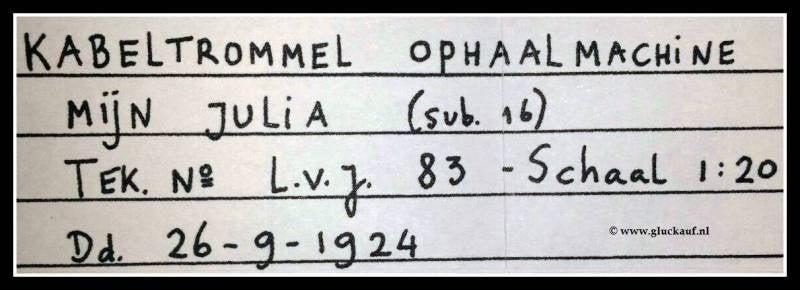 KABELTROMMEL OPHAALMACHiNE
MijN JULiA (sub. 16)
TEK. Nº L.v.J. 83 - Schaal 1:20
Dd. 26-9-1924
© www.gluckauf.nl